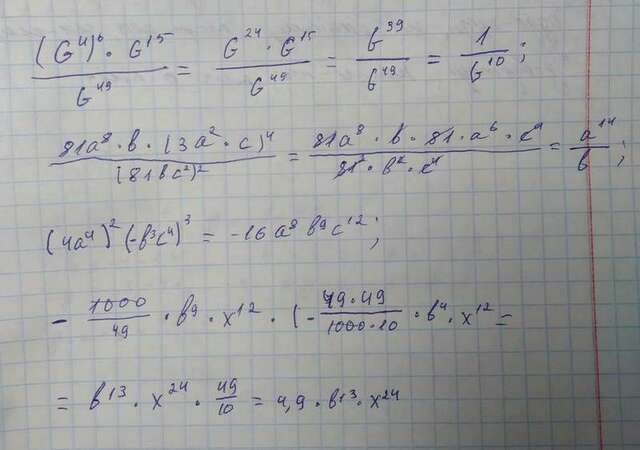 (b⁴)⁶ · b¹⁵ / b⁴⁹ = b²⁴ · b¹⁵ / b⁴⁹ = b³⁹ / b⁴⁹ = 1 / b¹⁰ ;
81a⁸ · b · (3a² · c)⁴ / (81bc²)² = 81a⁸ · b · 81 · a⁶ · c⁴ / 81² · b² · c⁴ = a¹⁴ / b ;
(4a⁴)² (-b³c⁴)³ = -16a⁸b⁹c¹² ;
- 1000 / 49 · b⁹ · x¹² · (- 49·49 / 1000·10 · b⁴ · x¹² =
= b¹³ · x²⁴ · 49 / 10 = 4,9 · b¹³ · x²⁴